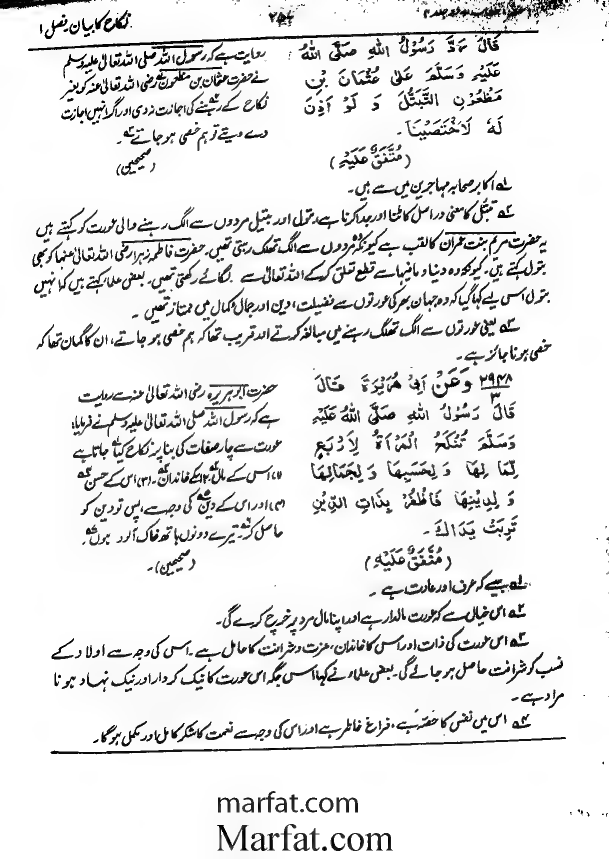 نکاح کا بیان فصل ۱
۲۵۴
قَالَ رَدَّ رَسُوْلُ اللهِ صَلَّى اللهُ
عَلَيْهِ وَسَلَّمَ عَلٰى عُثْمَانَ بْنِ
مَظْعُوْنٍ التَّبَتُّلَ وَ لَوْ اَذِنَ
لَهُ لَاخْتَصَيْنَا۔
(مُتَّفَقٌ عَلَيْهِ)
روایت ہے کہ رسول اللہ صلی اللہ تعالیٰ علیہ وسلم
نے حضرت عثمان بن مظعون رضی اللہ تعالیٰ عنہ کو بغیر
نکاح کے رہنے کی اجازت نہ دی اور اگر انہیں اجازت
دے دیتے تو ہم خصی ہو جاتے۔
(صحیحین)
۱؎ اکابر صحابہ مہاجرین میں سے ہیں۔
۲؎ تبتل کا معنی دراصل کاٹنا اور جدا کرنا ہے، بتول اور بتیل مردوں سے الگ رہنے والی عورت کو کہتے ہیں
یہ حضرت مریم بنت عمران کا لقب ہے کیونکہ وہ مردوں سے الگ تھلگ رہتی تھیں۔ حضرت فاطمہ زہرا رضی اللہ تعالیٰ عنہا کو بھی
بتول کہتے ہیں۔ کیونکہ وہ دنیا و مافیہا سے قطع تعلق کر کے اللہ تعالیٰ سے لگائے رکھتی تھیں۔ بعض علماء کہتے ہیں کہ انہیں
بتول اس لیے کہا گیا کہ وہ جہان بھر کی عورتوں سے فضیلت، دین اور جمال و کمال میں ممتاز تھیں۔
۳؎ یعنی عورتوں سے الگ تھلگ رہنے میں مبالغہ کرتے اور قریب تھا کہ ہم خصی ہو جاتے، ان کا گمان تھا کہ
خصی ہونا جائز ہے۔
۲۹۴۸ وَعَنْ اَبِیْ هُرَيْرَةَ قَالَ
۳
قَالَ رَسُوْلُ اللهِ صَلَّى اللهُ عَلَيْهِ
وَسَلَّمَ تُنْكَحُ الْمَرْاَةُ لِاَرْبَعٍ
لِمَا لِهَا وَ لِحَسَبِهَا وَ لِجَمَالِهَا
وَ لِدِيْنِهَا فَاظْفَرْ بِذَاتِ الدِّيْنِ
تَرِبَتْ يَدَاكَ۔
(مُتَّفَقٌ عَلَيْهِ)
حضرت ابوہریرہ رضی اللہ تعالیٰ عنہ سے روایت
ہے کہ رسول اللہ صلی اللہ تعالیٰ علیہ وسلم نے فرمایا:
عورت سے چار صفات کی بنا پر نکاح کیا جاتا ہے
(۱) اس کے مال (۲) کے خاندان (۳) اس کے حسن
(۴) اور اس کے دین کی وجہ سے، پس تو دین کو
حاصل کر۔ تیرے دونوں ہاتھ خاک آلود ہوں
(صحیحین)۔
۱؎ جیسے کہ عرف اور عادت ہے۔
۲؎ اس خیال سے کہ عورت مالدار ہے اور اپنا مال مرد پر خرچ کرے گی۔
۳؎ اس عورت کی ذات اور اس کا خاندان، عزت و شرافت کا حامل ہے۔ اس کی وجہ سے اولاد کے
نسب کو شرافت حاصل ہو جائے گی۔ بعض علماء نے کہا اس جگہ اس عورت کا نیک کردار اور نیک نہاد ہونا
مراد ہے۔
۴؎ اس میں نفس کا حصہ ہے، فراغ خاطر ہے اور اس کی وجہ سے نعمت کا شکر کامل اور مکمل ہوگا۔
marfat.com
Marfat.com